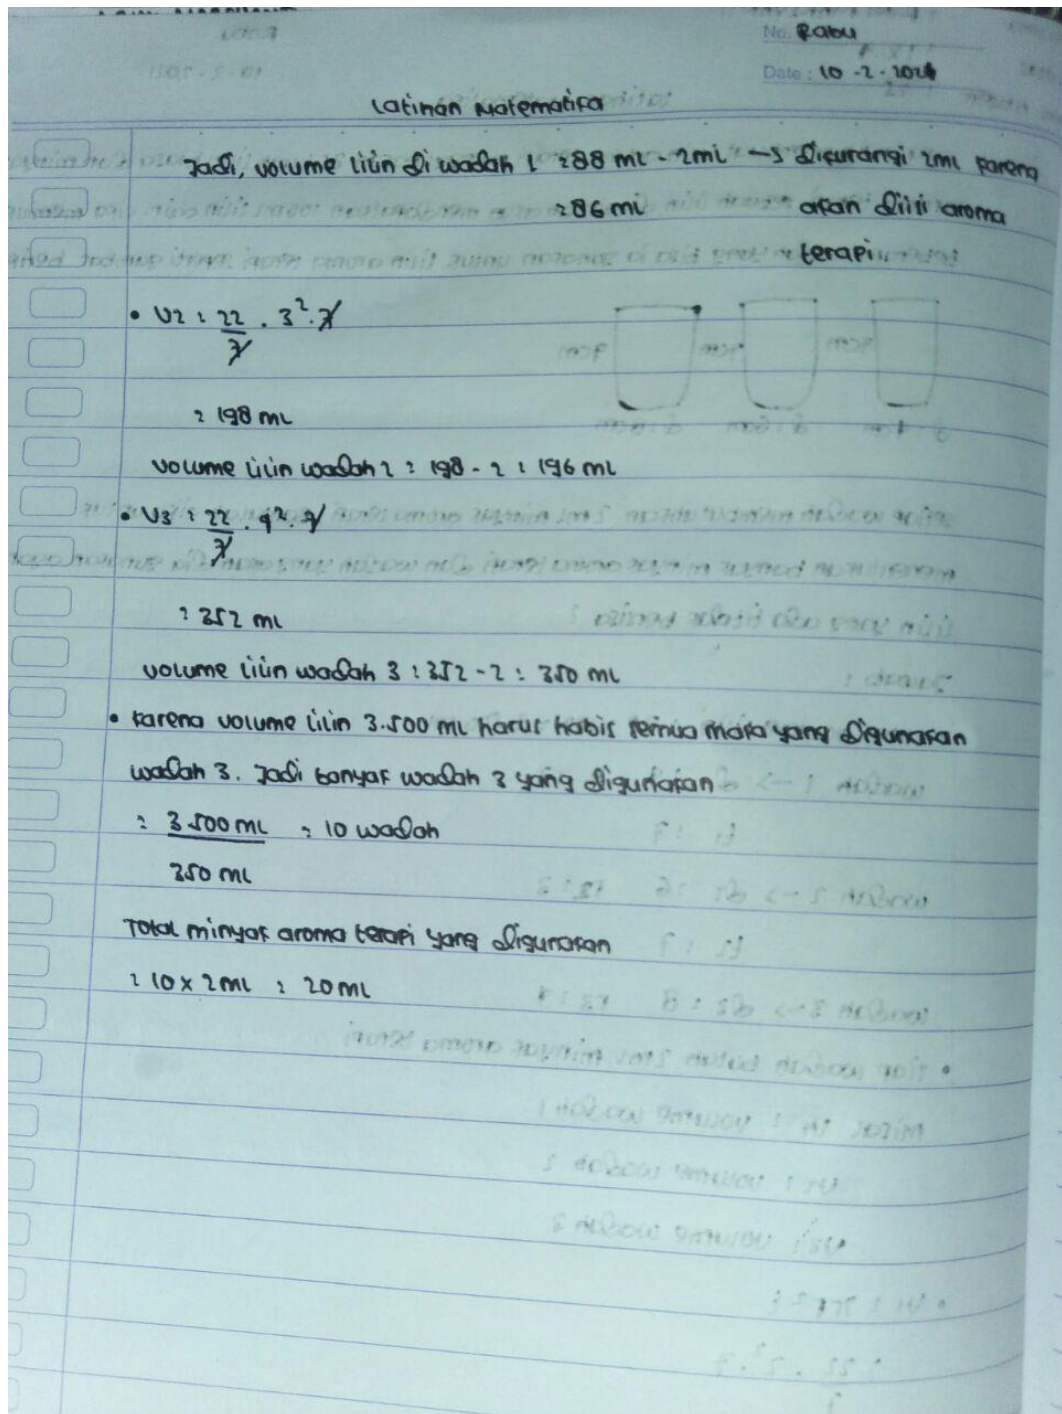 No. Rabu
Date : 10 - 2 - 2021
Latihan Matematika
Jadi, volume lilin di wadah 1 = 88 ml - 2ml → dikurangi 2ml karena
= 86 ml akan diisi aroma
terapi
• V2 = 22/7 . 3² . 7
= 198 ml
volume lilin wadah 2 = 198 - 2 = 196 ml
• V3 = 22/7 . 4² . 7
= 352 ml
volume lilin wadah 3 = 352 - 2 = 350 ml
• Karena volume lilin 3.500 ml harus habis semua maka yang digunakan
wadah 3. Jadi banyak wadah 3 yang digunakan
= 3.500 ml / 350 ml = 10 wadah
Total minyak aroma terapi yang digunakan
= 10 x 2ml = 20 ml